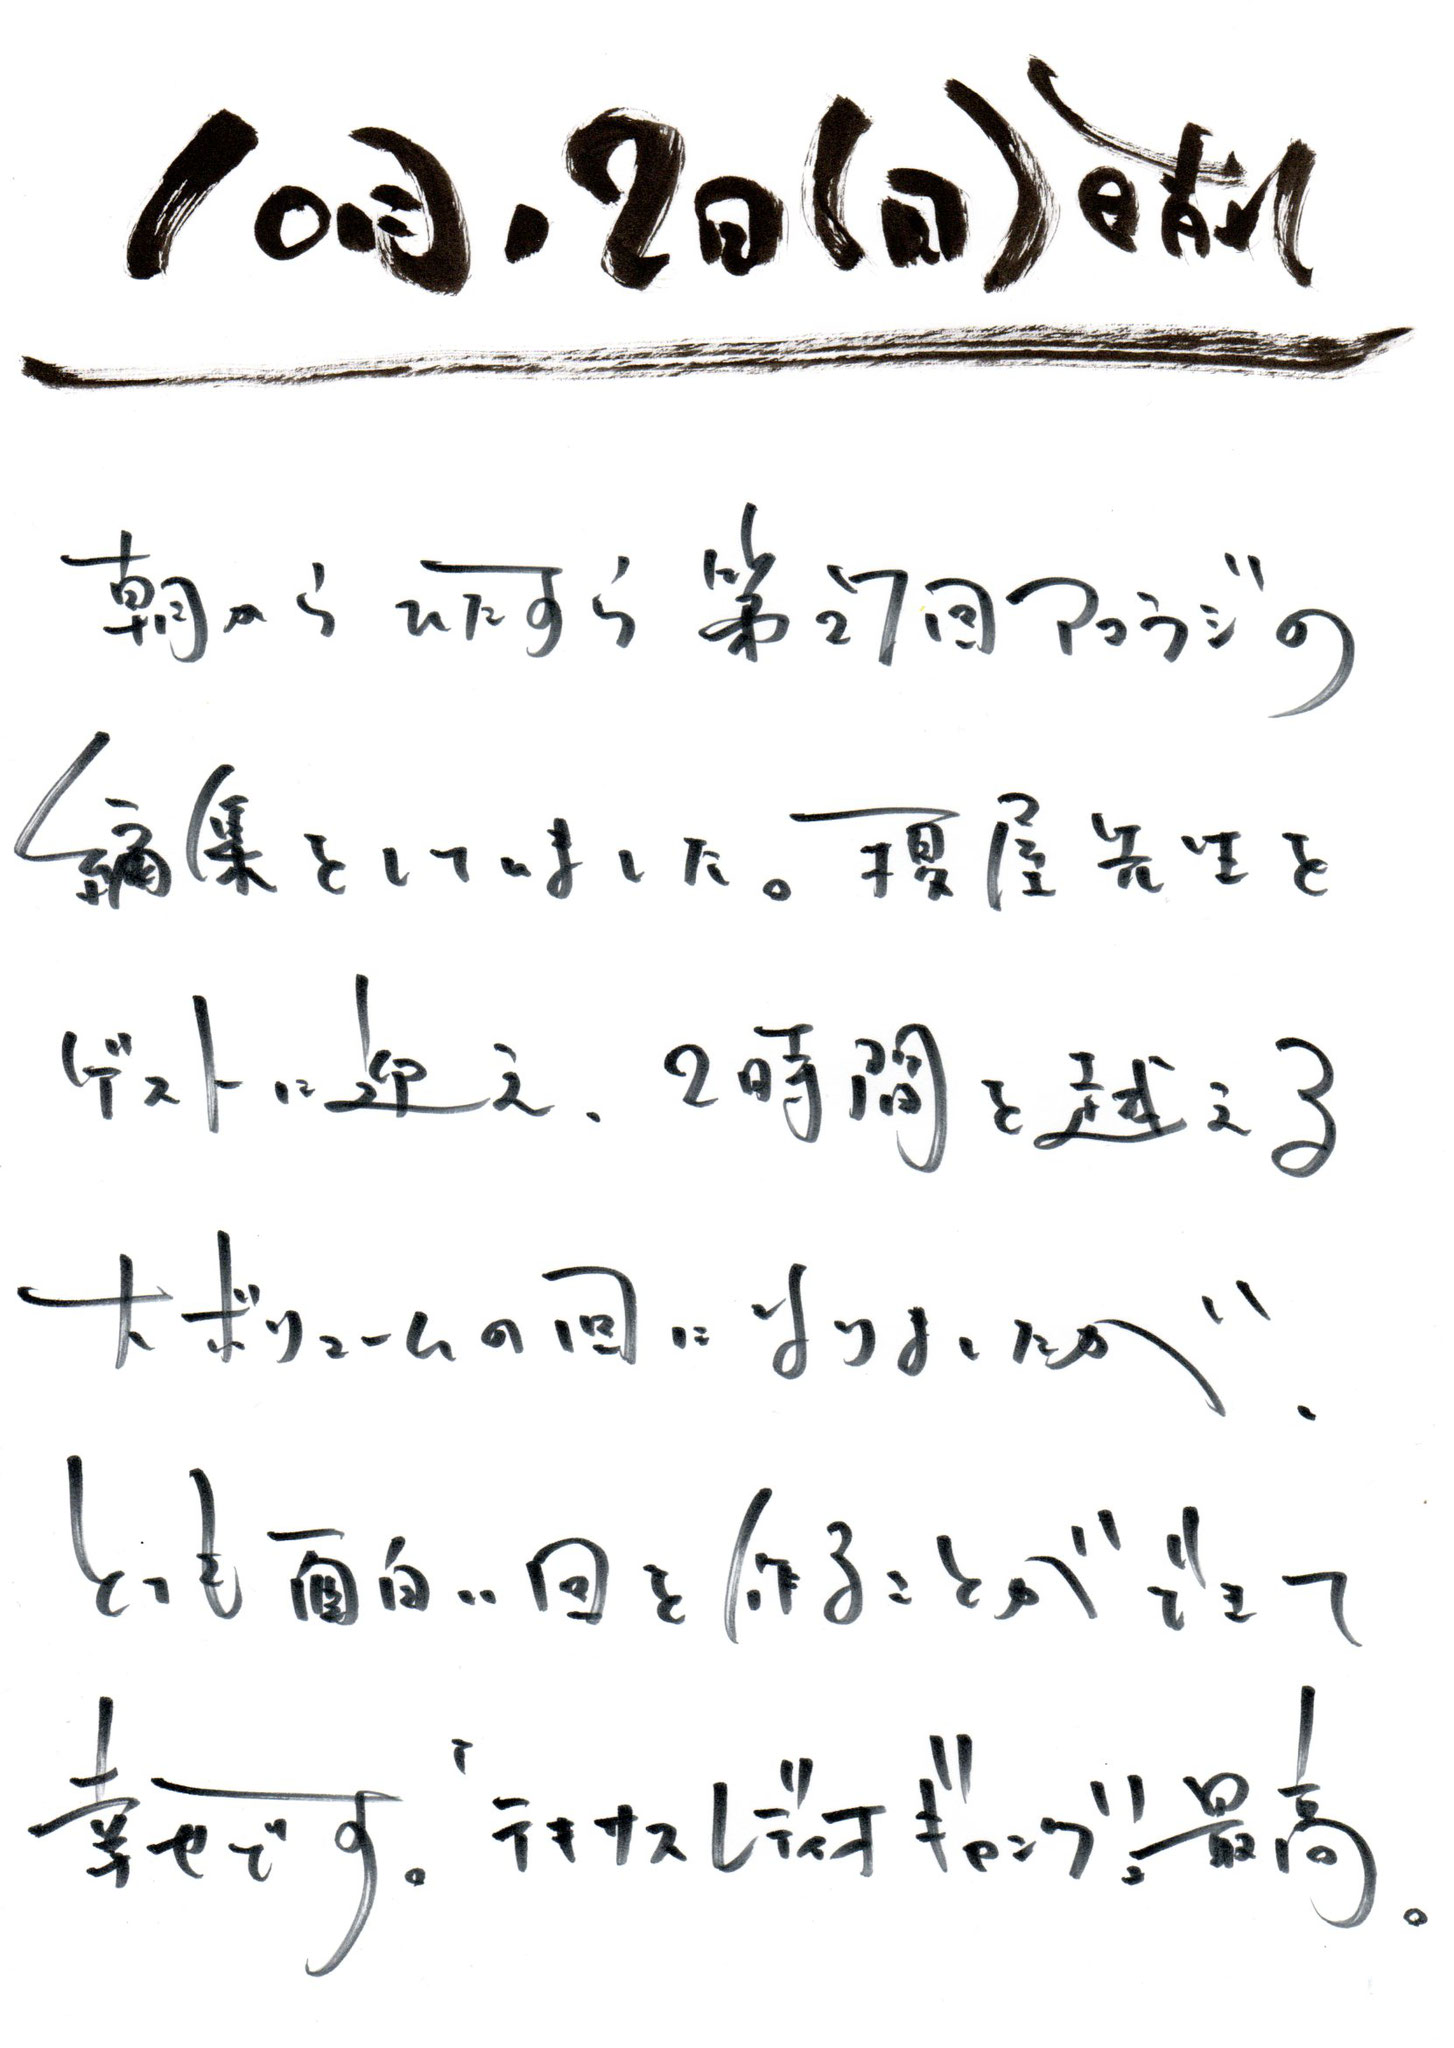 10月2日(日)晴れ
朝からひたすら第27回アコラジの
編集をしていました。榎屋先生を
ゲストに迎え、2時間を越える
大ボリュームの回になりましたが、
とっても面白い回を作ることができて
幸せです。「テキサスレディオギャング」最高。